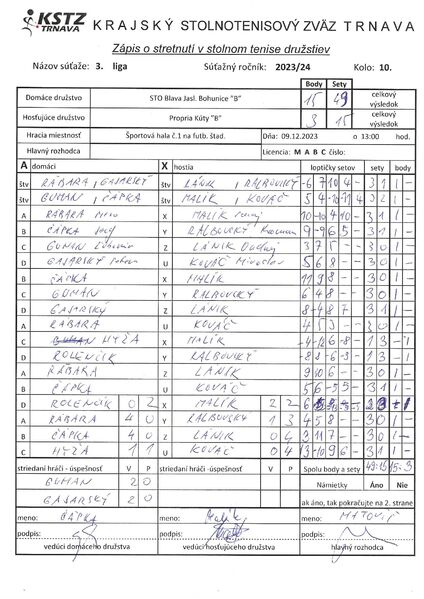 KSTZ TRNAVA KRAJSKÝ STOLNOTENISOVÝ ZVÄZ TRNAVA
Zápis o stretnutí v stolnom tenise družstiev
Názov súťaže: 3. liga Súťažný ročník: 2023/24 Kolo: 10.
Body Sety
Domáce družstvo STO Blava Jasl. Bohunice "B" 15 49 celkový výsledok
Hosťujúce družstvo Propria Kúty "B" 3 15 celkový výsledok
Hracia miestnosť Športová hala č.1 na futb. štad. Dňa: 09.12.2023 o 13:00 hod.
Hlavný rozhodca Licencia: M A B C číslo:
A domáci X hostia loptičky setov sety body
štv RÁBARA, GAJARSKÝ štv LÁNIK, RALBOVSKÝ -6 7 10 4 - 3 1 1 -
štv GUMAN, ČÁPKA štv MALÍK, KOVÁČ
A RÁBARA X MALÍK 10 -10 4 10 - 3 1 1 -
B ČÁPKA Y RALBOVSKÝ 9 -9 6 5 - 3 1 1 -
C GUMAN Z LÁNIK 3 7 5 - - 3 0 1 -
D GAJARSKÝ U KOVÁČ Miroslav 5 6 8 - - 3 0 1 -
B ČÁPKA X MALÍK 11 9 8 - - 3 0 1 -
C GUMAN Y RALBOVSKÝ 6 4 8 - - 3 0 1 -
D GAJARSKÝ Z LÁNIK 8 -4 8 7 3 1 1 -
A RÁBARA U KOVÁČ 4 5 3 - - 3 0 1 -
C HYŽA X MALÍK -4 -12 6 -8 - 1 3 - 1
D ROLENČÍK Y RALBOVSKÝ -8 8 -6 -3 - 1 3 - 1
A RÁBARA Z LÁNIK 9 10 6 - - 3 0 1 -
B ČÁPKA U KOVÁČ 5 6 -5 5 - 3 1 1 -
D ROLENČÍK 0 2 X MALÍK 2 2 2 3 - 1
A RÁBARA 4 0 Y RALBOVSKÝ 1 3 4 5 8 - - 3 0 1 -
B ČÁPKA 4 0 Z LÁNIK 0 4 3 11 7 - - 3 0 1 -
C HYŽA 1 1 U KOVÁČ 0 4 13 -10 9 6 3 1 1 -
striedaní hráči - úspešnosť V P striedaní hráči - úspešnosť V P Spolu body a sety 49:15 15:3
GUMAN 2 0 Námietky Áno Nie
GAJARSKÝ 2 0 ak áno, tak pokračujte na 2. strane
meno: ČÁPKA meno: Malík meno: MATOVIČ
podpis: podpis: podpis:
vedúci domáceho družstva vedúci hosťujúceho družstva hlavný rozhodca